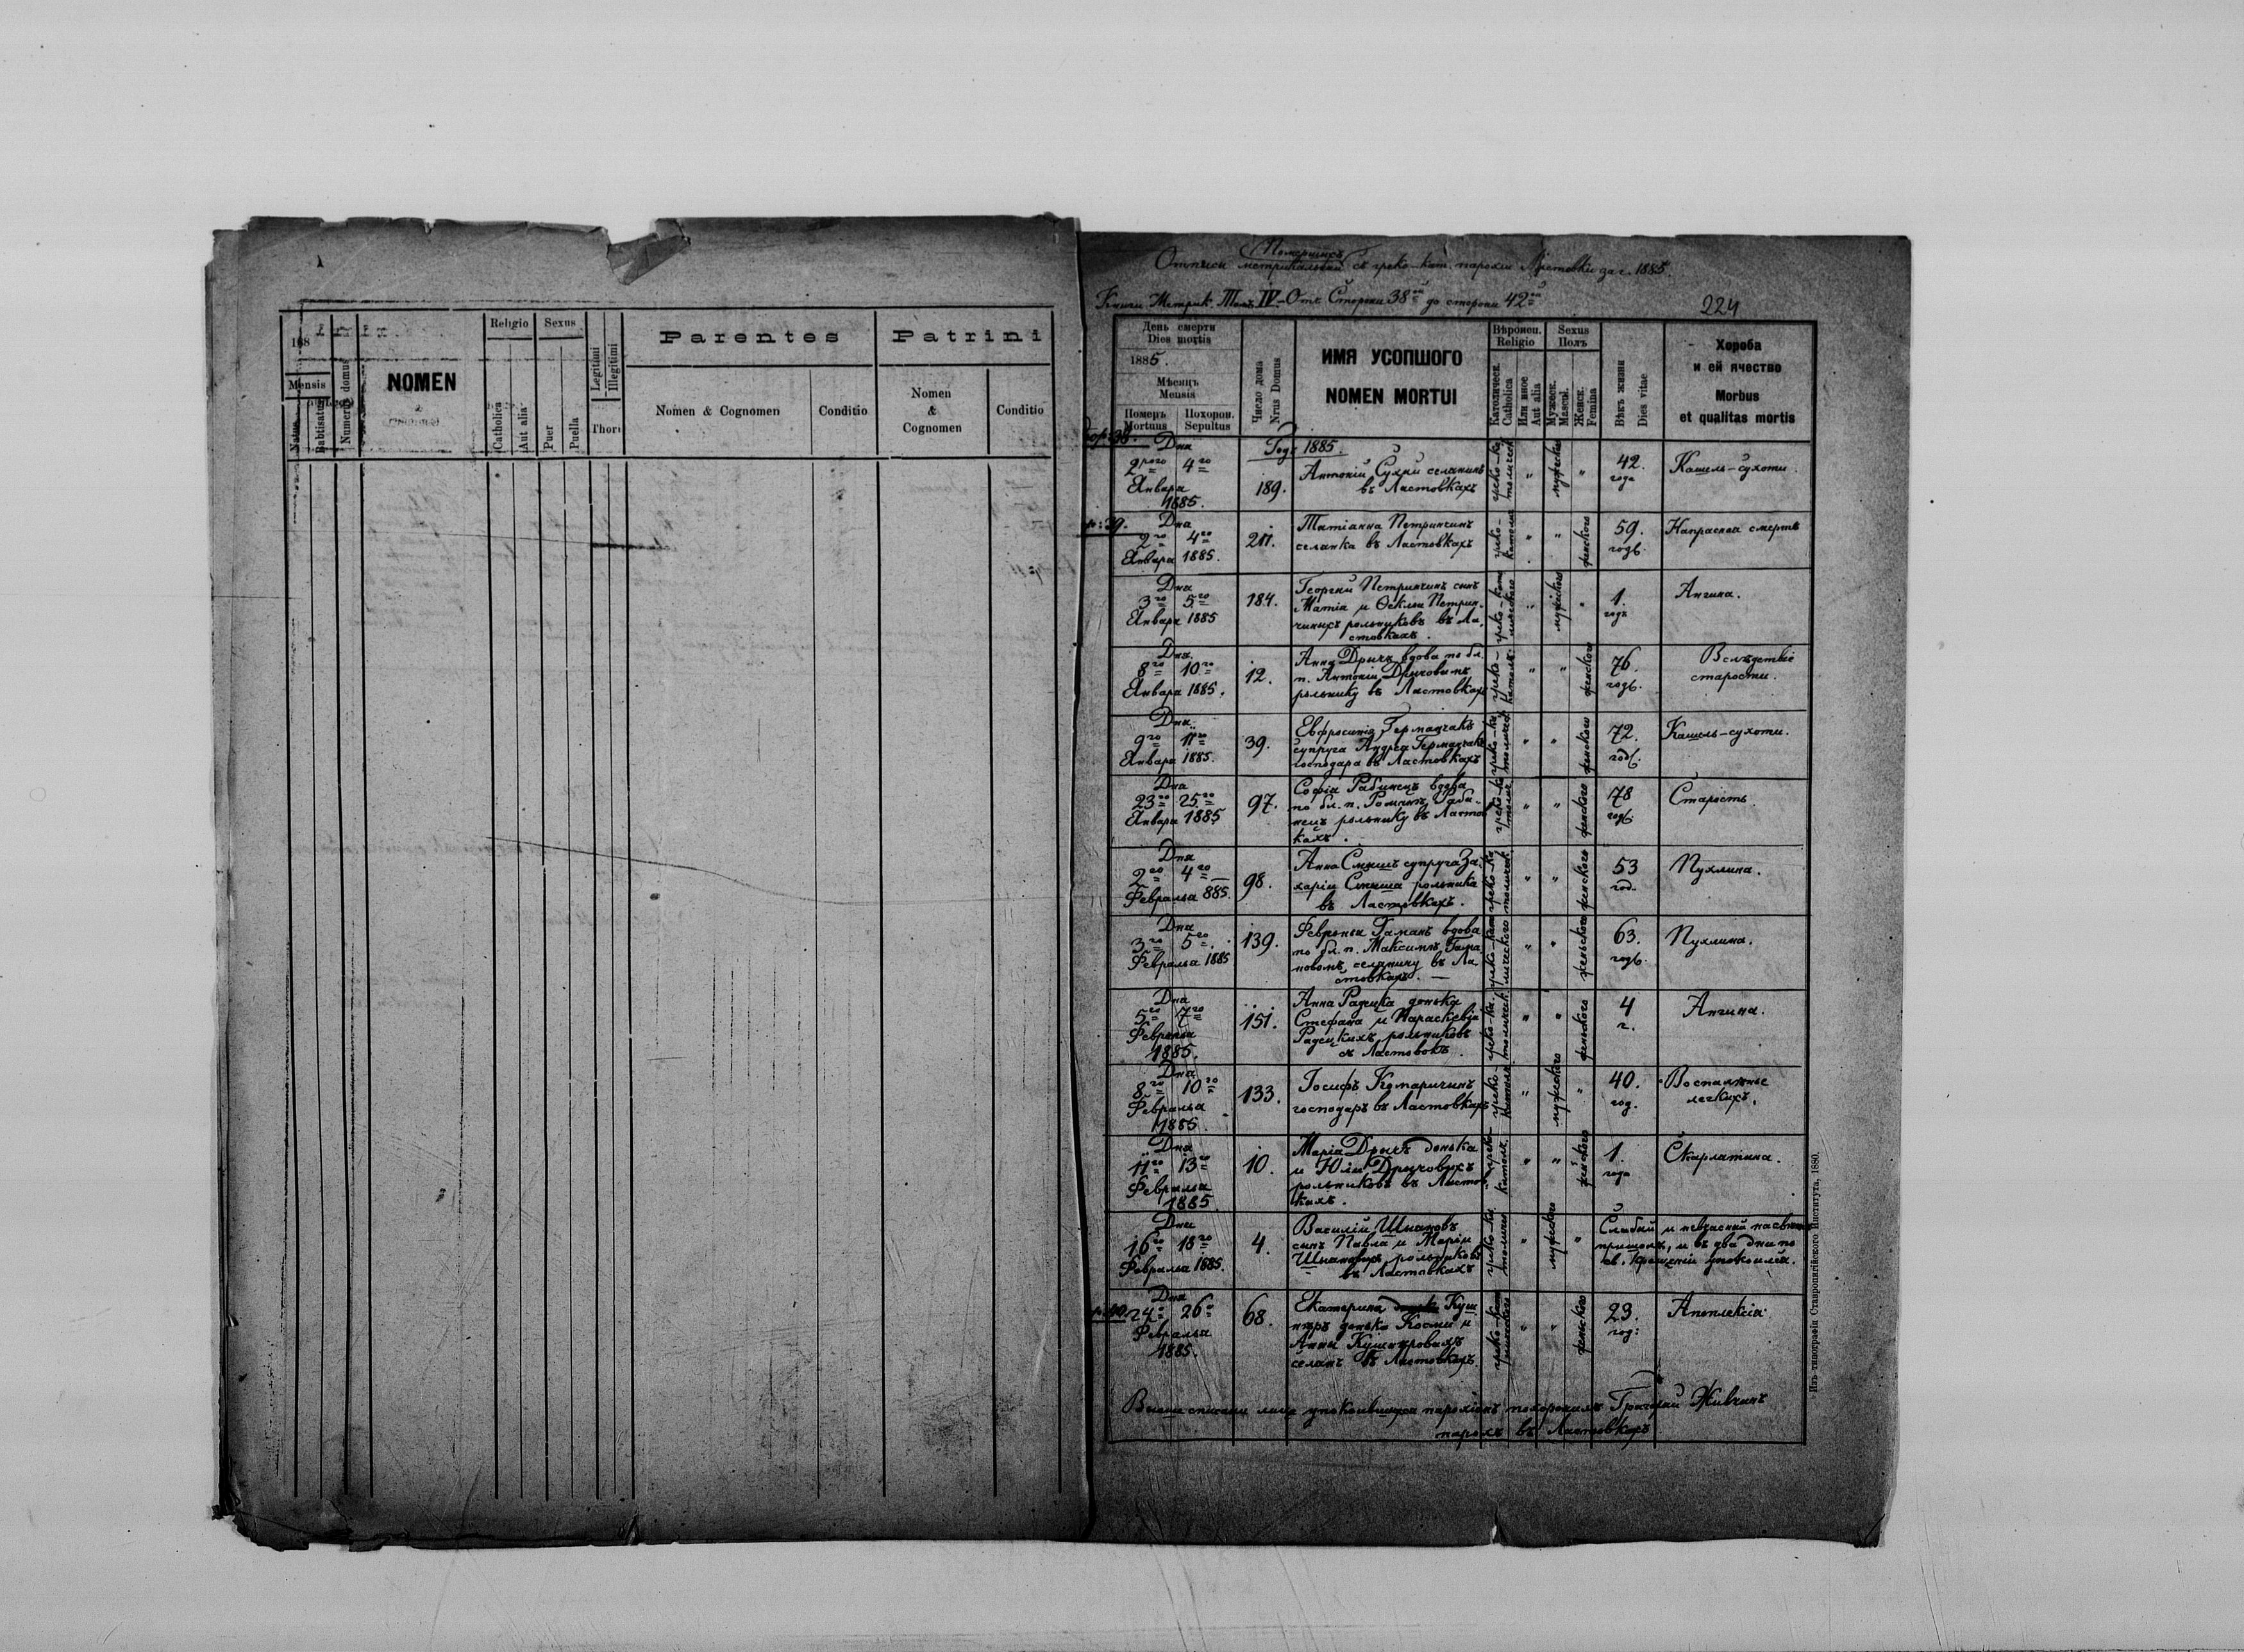 188
Mensis
Natus
Babtisatus
Numerus domus
NOMEN
Religio
Catholica
Aut alia
Sexus
Puer
Puella
Legitimi
Illegitimi
Thori
Parentes
Nomen & Cognomen
Conditio
Patrini
Nomen
&
Cognomen
Conditio
Помершихъ
Отписи метрикальній съ греко-кат. парохіи Ластовки за г. 1885.
Книги Метрик. Томъ IV. Отъ Сторони 38ой до сторони 42ой
224
День смерти
Dies mortis
1885.
Мѣсяць
Mensis
Померъ
Mortuus
Похорон.
Sepultus
Число дома
Nrus Domus
ИМЯ УСОПШОГО
NOMEN MORTUI
Вѣроисп.
Religio
Католическ.
Catholica
Или иное
Aut alia
Sexus
Полъ
Мужеск.
Mascul.
Женск.
Femina
Вѣкъ жизни
Dies vitae
Хороба
и ей ячество
Morbus
et qualitas mortis
Годъ 1885.
Дня
2рого 4го
Января
1885.
189.
Антоній Сухый селянинъ
въ Ластовкахъ
греко-ка
толическ
"
мужеска
"
42.
года
Кашель-сухоти.
Дня
2го 4го
Января 1885.
211.
Татіанна Петринчинъ
селянка въ Ластовкахъ
греко-
католи
"
"
женского
59.
годъ.
Напрасная смерть
Дня
3го 5го
Января 1885
184.
Георгій Петринчинъ сынъ
Матія и Феклы Петрин-
чиныхъ рольниковъ въ Ла-
стовкахъ.
греко-кат
лического
"
мужского
"
1.
годъ
Ангина.
Дня
8го 10го
Января 1885.
12.
Анна Дрычъ вдова по бл.
п. Антоніи Дрычовымъ
рольнику въ Ластовкахъ
греко-
католи
"
"
женского
76.
годъ.
Вслѣдствіе
старости.
Дня
9го 11го
Января 1885.
39.
Евфросинія Германчакъ
супруга Андрея Германчакъ
господаря въ Ластовкахъ
греко-ка
толическ
"
"
женского
72.
год.
Кашель-сухоти.
Дня
23го 25го
Января 1885
97.
Софія Рабинецъ вдова
по бл. п. Романѣ Раби-
нецъ рольнику въ Ластов
кахъ.
греко-ка
толич
"
"
женского
78
годъ.
Старость.
Дня
2го 4го
Февраля 885.
98.
Анна Смышъ супруга За-
харіи Смыша рольника
въ Ластовкахъ.
греко-ка
толическ
"
"
женского
53
год.
Пухлина.
Дня
3го 5го
Февраля 1885
139.
Февронья Гаманъ вдова
по бл. п. Максимѣ Гама-
новомъ селянину въ Ла-
стовкахъ.
греко-кат
лического
"
"
женьского
63.
годъ.
Пухлина.
Дня
5го 7го
Февраля
1885.
151.
Анна Радецка донька
Стефана и Параскевіи
Радецкихъ рольниковъ
съ Ластовокъ.
греко-ка
толическ
"
"
женьского
4
г.
Ангина.
Дня
8го 10го
Февраля
1885.
133.
Іосифъ Комаричинъ
господарь въ Ластовкахъ
греко-
католи
"
мужского
"
40.
год.
Воспаленье
легкихъ.
Дня
11го 13го
Февраля
1885
10.
Марія Дрычъ донька
и Юліи Дрычовыхъ
рольниковъ въ Ластов
кахъ.
греко-
католи
"
"
женского
1.
года
Скарлатина.
Дня
16го 18го
Февраля 1885.
4.
Василій Шпановъ
сынъ Павла и Маріи
Шпановыхъ рольниковъ
въ Ластовкахъ
греко-ка
толическ
"
мужеского
"
Слабый и невчасный на свѣтъ
пришолъ, и въ два дни по
св. Крещеніи упокоился.
Дня
24го 26го
Февраля
1885.
68.
Екатерина Куш
ниръ донька Космы и
Анны Кушнѣровыхъ
селянъ въ Ластовкахъ.
греко-кат
лического
"
"
женьского
23.
год:
Апоплексія
Вышеписаны лица упокоившихся парохіянъ похоронилъ Григорій Живчинъ
парохъ въ Ластовкахъ
Изъ типографіи Ставропигійского Института, 1880.